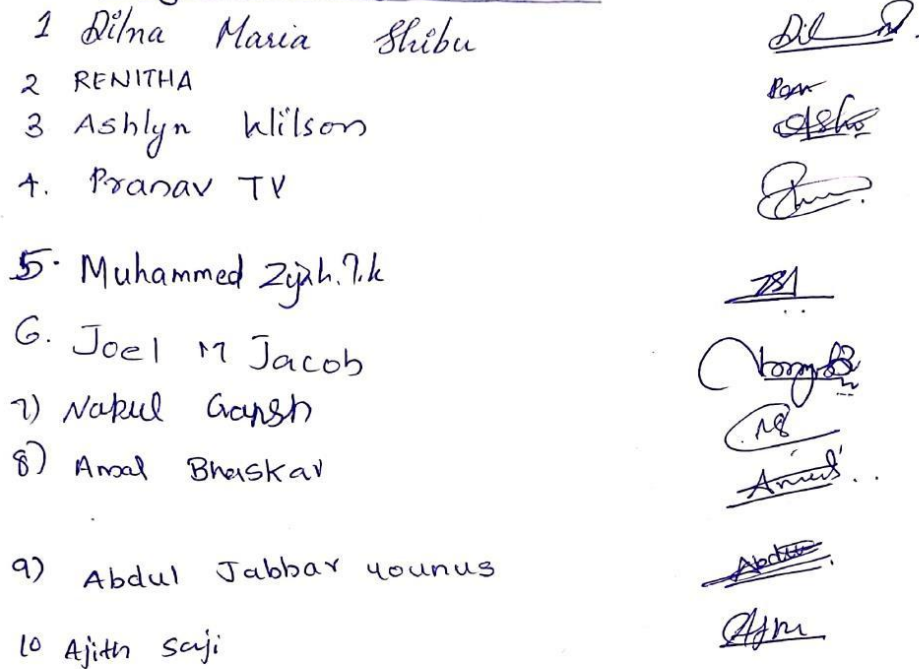 1 Dilna Maria Shibu Dil
2 RENITHA
3 Ashlyn Wilson
4. Pranav TV
5. Muhammed
6. Joel M Jacob
7) Nakul
8) Amal Bhaskar
9) Abdul Jabbar younus Abdul
10 Ajith Saji